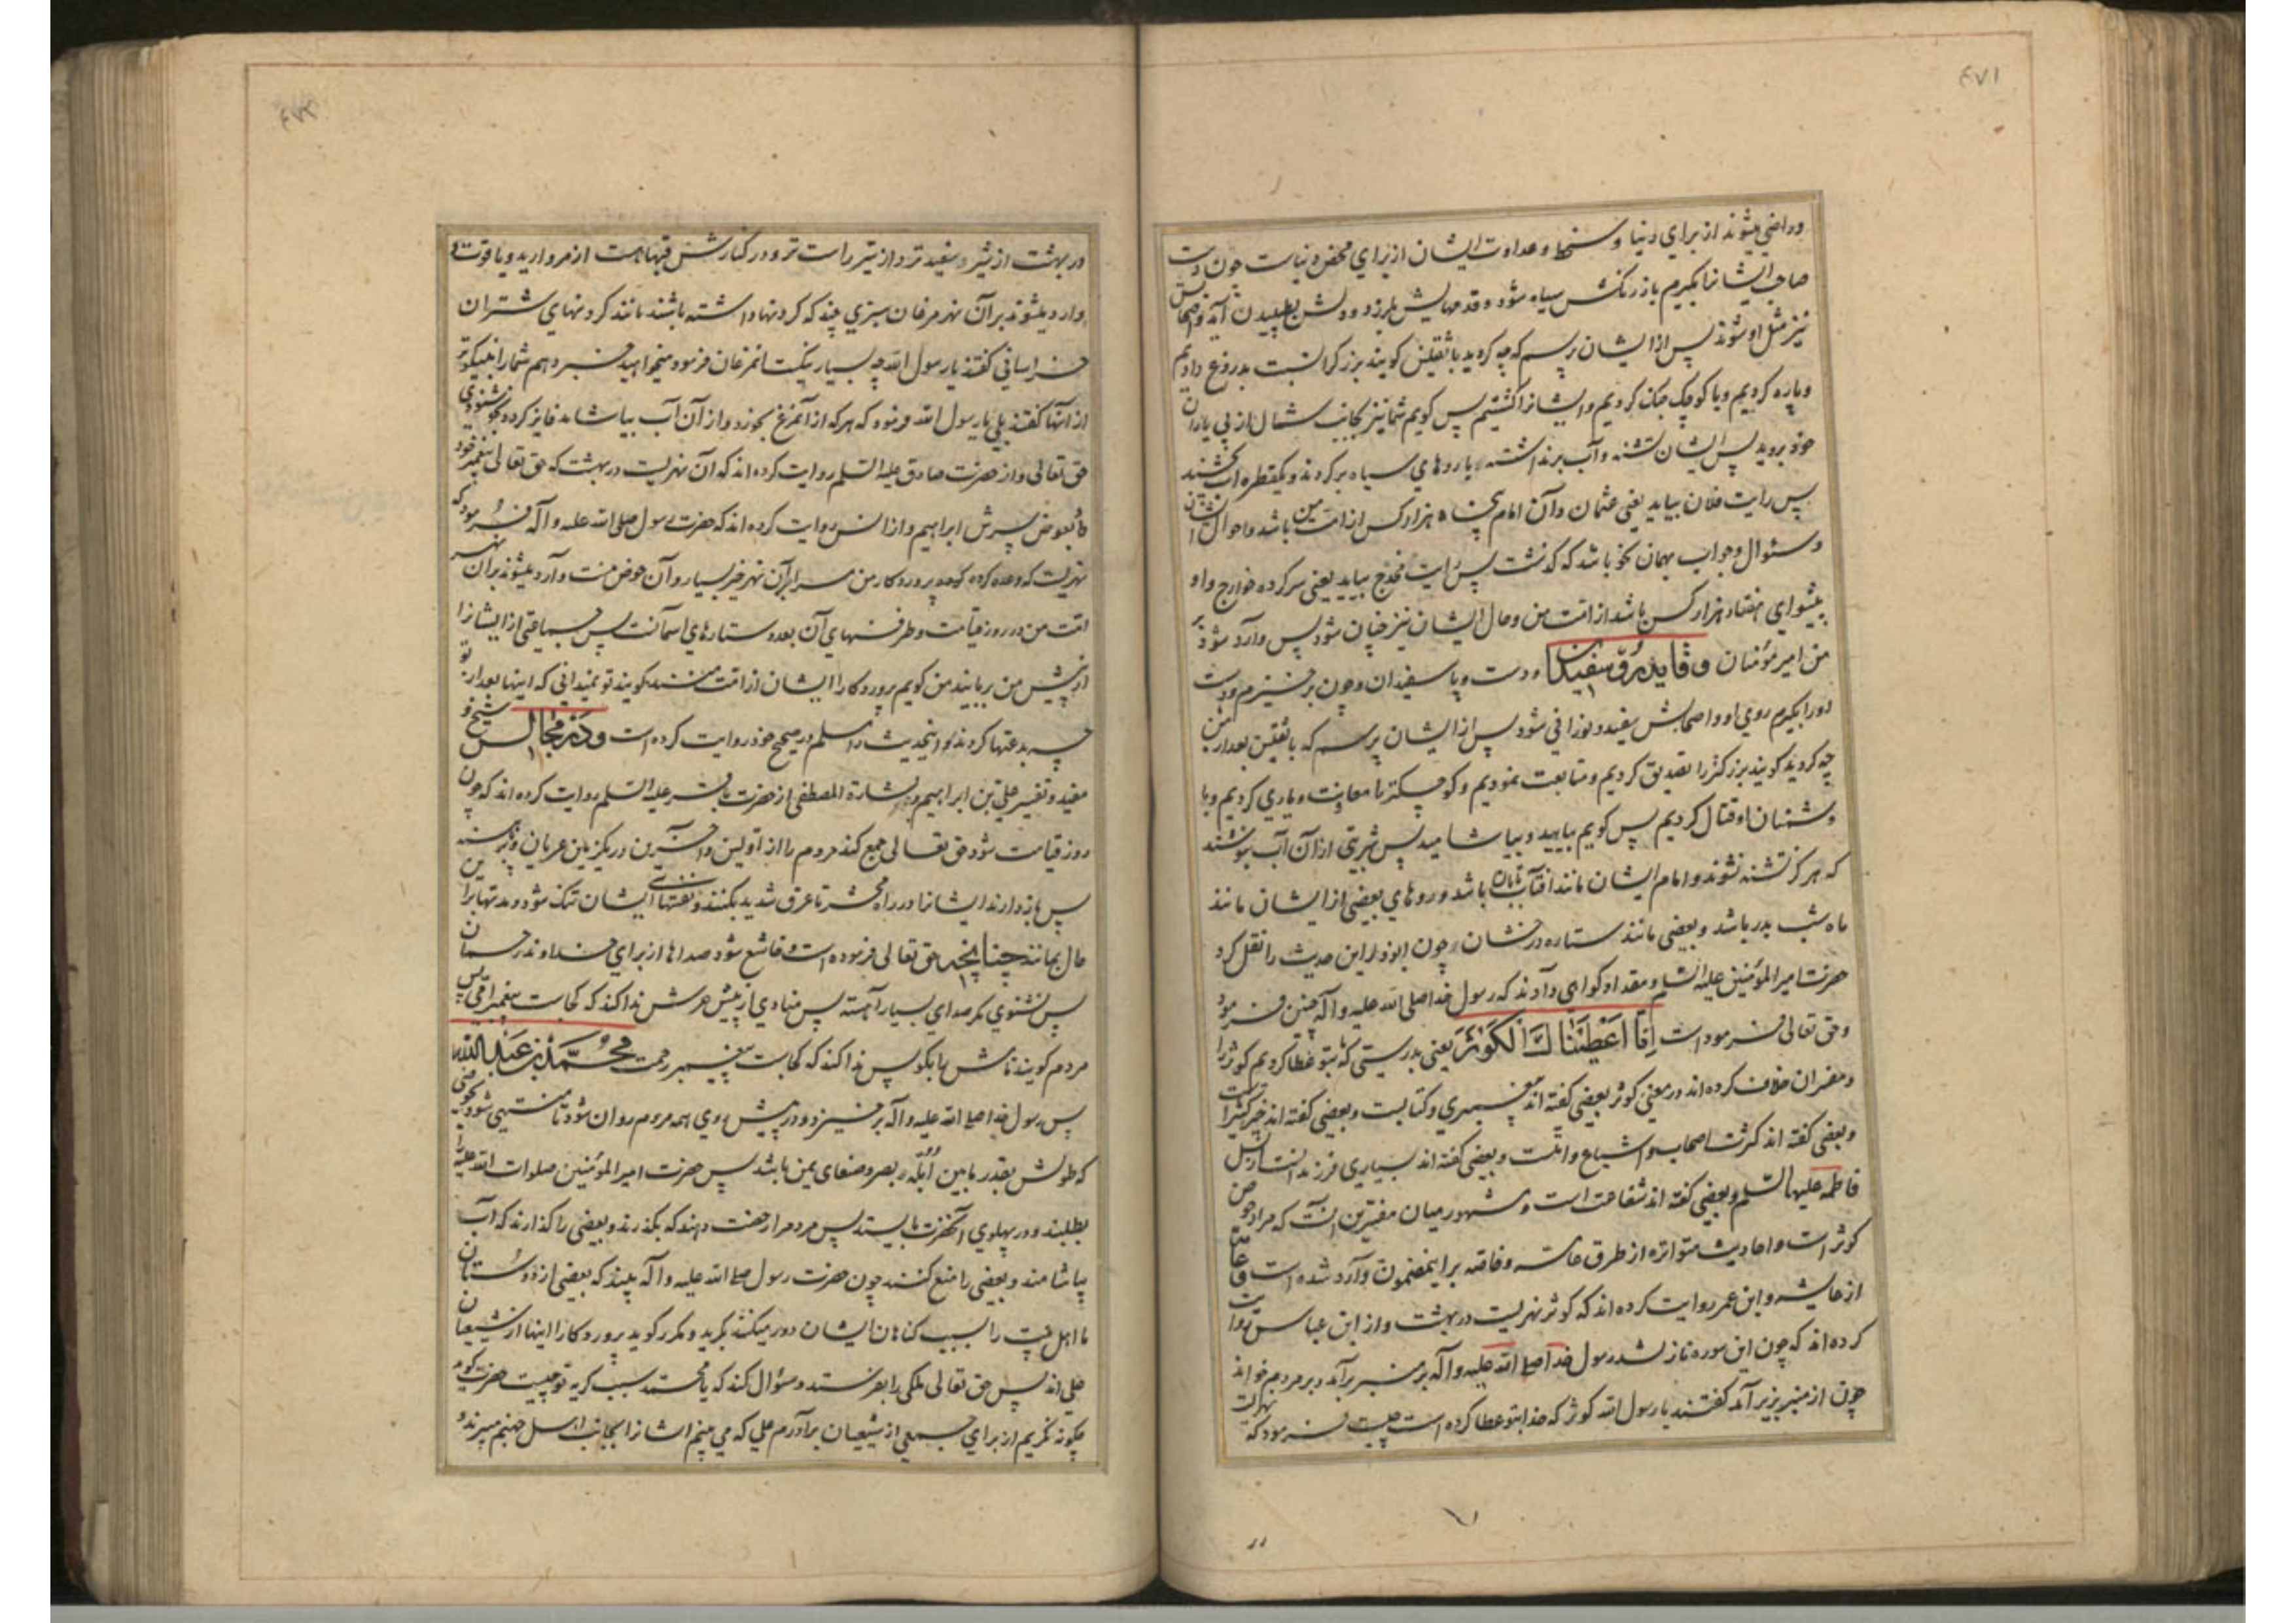 ٤٧١
وراضی میشوند از برای دنیا و سخط و عداوت ایشان از برای محض دنیاست چون دست
صاحب ایشانرا بگیرم باز رنگش سیاه شود و قدمهایش بلرزد و دلش بطپیدن آید و اصحابش
نیز مثل او شوند پس از ایشان پرسم که چه کردید با ثقلین گویند بزرگ را نسبت بدروغ دادیم
و پاره کردیم و با کوچک جنک کردیم و ایشانرا کشتیم پس گویم شما نیز بجانب شمال از پی یاران
خود بروید پس ایشان تشنه و آب برنداشته با روهای سیاه برگردند و یکقطره آب نچشند
پس رایت فلان بیاید یعنی عثمان و آن امام پنجاه هزار کس از امت من باشد و احوال ایشان
و سئوال و جواب بهمان نحو باشد که گذشت پس رایت مخدج بیاید یعنی سرکرده خوارج و او
پیشوای هفتاد هزار کس باشد از امت من و حال ایشان نیز چنان شود پس وارد شود بر
من امیر مؤمنان و قاید رو سفیدان و دست و پا سفیدان و چون برخیزم و دست
اورا بگیرم روی او و اصحابش سفید و نورانی شود پس از ایشان پرسم که با ثقلین بعد از من
چه کردید گویند بزرگتر را تصدیق کردیم و متابعت نمودیم و کوچکتر را معاونت و یاری کردیم و با
دشمنان او قتال کردیم پس گویم بیایید و بیاشامید پس شربتی از آن آب بنوشند
که هرگز تشنه نشوند و امام ایشان مانند آفتاب تابان باشد و روهای بعضی از ایشان مانند
ماه شب بدر باشد و بعضی مانند ستاره درخشان و چون ابوذر این حدیث را نقل کرد
حضرت امیر المؤمنین علیه السلم و مقداد گواهی دادند که رسول خدا صلی الله علیه و آله چنین فرمود
و حق تعالی فرموده است اِنّا اَعْطَیْنٰاكَ الْكَوْثَرَ یعنی بدرستی که ما بتو عطا کردیم کوثر را
و مفسران خلاف کرده اند در معنی کوثر بعضی گفته اند پیغمبری و کتابست و بعضی گفته اند خیر کثیر است
و بعضی گفته اند کثرت اصحاب و اشیاع و امتست و بعضی گفته اند بسیاری فرزند انست از نسل
فاطمه علیها السلم و بعضی گفته اند شفاعت است و مشهور میان مفسرین آنست که مراد حوض
کوثر است و احادیث متواتره از طرق عامه و خاصه بر این مضمون وارد شده است
از عایشه و ابن عمر روایت کرده اند که کوثر نهریست در بهشت و از ابن عباس روایت
کرده اند که چون این سوره نازل شد رسول خدا صلی الله علیه و آله بر منبر برآمد و بر مردم خواند
چون از منبر بزیر آمد گفتند یا رسول الله کوثر که خدا بتو عطا کرده است چیست فرمود که نهریست
٤٧٢
در بهشت از شیر سفید تر و از تیر راست تر و در کنارش قبهاست از مروارید و یاقوت
وارد میشوند بر آن نهر مرغان سبزی چند که گردنها داشته باشند مانند گردنهای شتران
خراسانی گفتند یا رسول الله چه بسیار نیکست این مرغان فرمود میخواهید خبر دهم شما را بنیکوتر
از آنها گفتند بلی یا رسول الله فرمود که هر که از آن مرغ بخورد و از آن آب بیاشامد فایز گردد بخوشنودی
حق تعالی و از حضرت صادق علیه السلم روایت کرده اند که آن نهریست در بهشت که حق تعالی بپیغمبر خود
داد بعوض پسرش ابراهیم و از انس روایت کرده اند که حضرت رسول صلی الله علیه و آله فرمود که
نهریست که وعده کرده پروردگار من مرا بر آن نهر خیر بسیار و آن حوض منست وارد میشوند بر آن نهر
امت من در روز قیامت و ظرفهای آن بعدد ستارهای آسمانست پس جماعتی از ایشانرا
از پیش من بربایند من گویم پروردگارا ایشان از امت منند گویند تو نمیدانی که اینها بعد از تو
چه بدعتها کردند و اینحدیث را مسلم در صحیح خود روایت کرده است و در مجالس شیخ
مفید و تفسیر علی بن ابراهیم و بشارة المصطفی از حضرت باقر علیه السلم روایت کرده اند که چون
روز قیامت شود حق تعالی جمع کند مردم را از اولین و آخرین در یک زمین عریان و پا برهنه
پس بازدارند ایشانرا در راه محشر تا عرق شدید بکنند و نفسهای ایشان تنک شود و مدتها براین
حال بمانند چنانچه حق تعالی فرموده است خاشع شود صداها از برای خداوند رحمان
پس نشنوی مگر صدای بسیار آهسته پس منادی از پیش عرش ندا کند که کجاست پیغمبر امی پس
مردم گویند نامش را بگو پس ندا کند که کجاست پیغمبر رحمت محمد بن عبد الله
پس رسول خدا صلی الله علیه و آله برخیزد و در پیش روی همه مردم روان شود تا منتهی شود بحوضی
که طولش بقدر مابین اُبُلّه بصره و صنعای یمن باشد پس حضرت امیر المؤمنین صلوات الله علیه را
بطلبند و در پهلوی آنحضرت بایستد پس مردم را رخصت دهند که بگذرند و بعضی را گذارند که آب
بیاشامند و بعضی را منع کنند چون حضرت رسول صلی الله علیه و آله بیند که بعضی از دوستان
ما اهل بیت را بسبب گناهان ایشان دور میکنند بگرید و مکرر گوید پروردگارا اینها از شیعیان
علی اند پس حق تعالی ملکی را بفرستد و سئوال کند که یا محمد سبب گریه تو چیست حضرت گوید
چگونه نگریم از برای جمعی از شیعیان برادرم علی که می بینم ایشانرا بجانب اسفل جهنم میبرند و